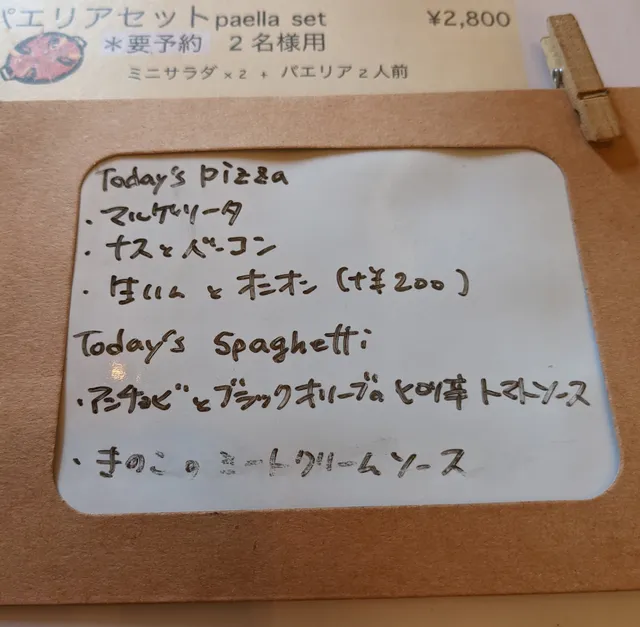 パエリアセット paella set ¥2,800
＊要予約 2名様用
ミニサラダ×2 + パエリア2人前
Today's pizza
・マルゲリータ
・ナスとベーコン
・生ハムとオニオン (+¥200)
Today's Spaghetti
・アンチョビとブラックオリーブのピリ辛トマトソース
・きのこのミートクリームソース